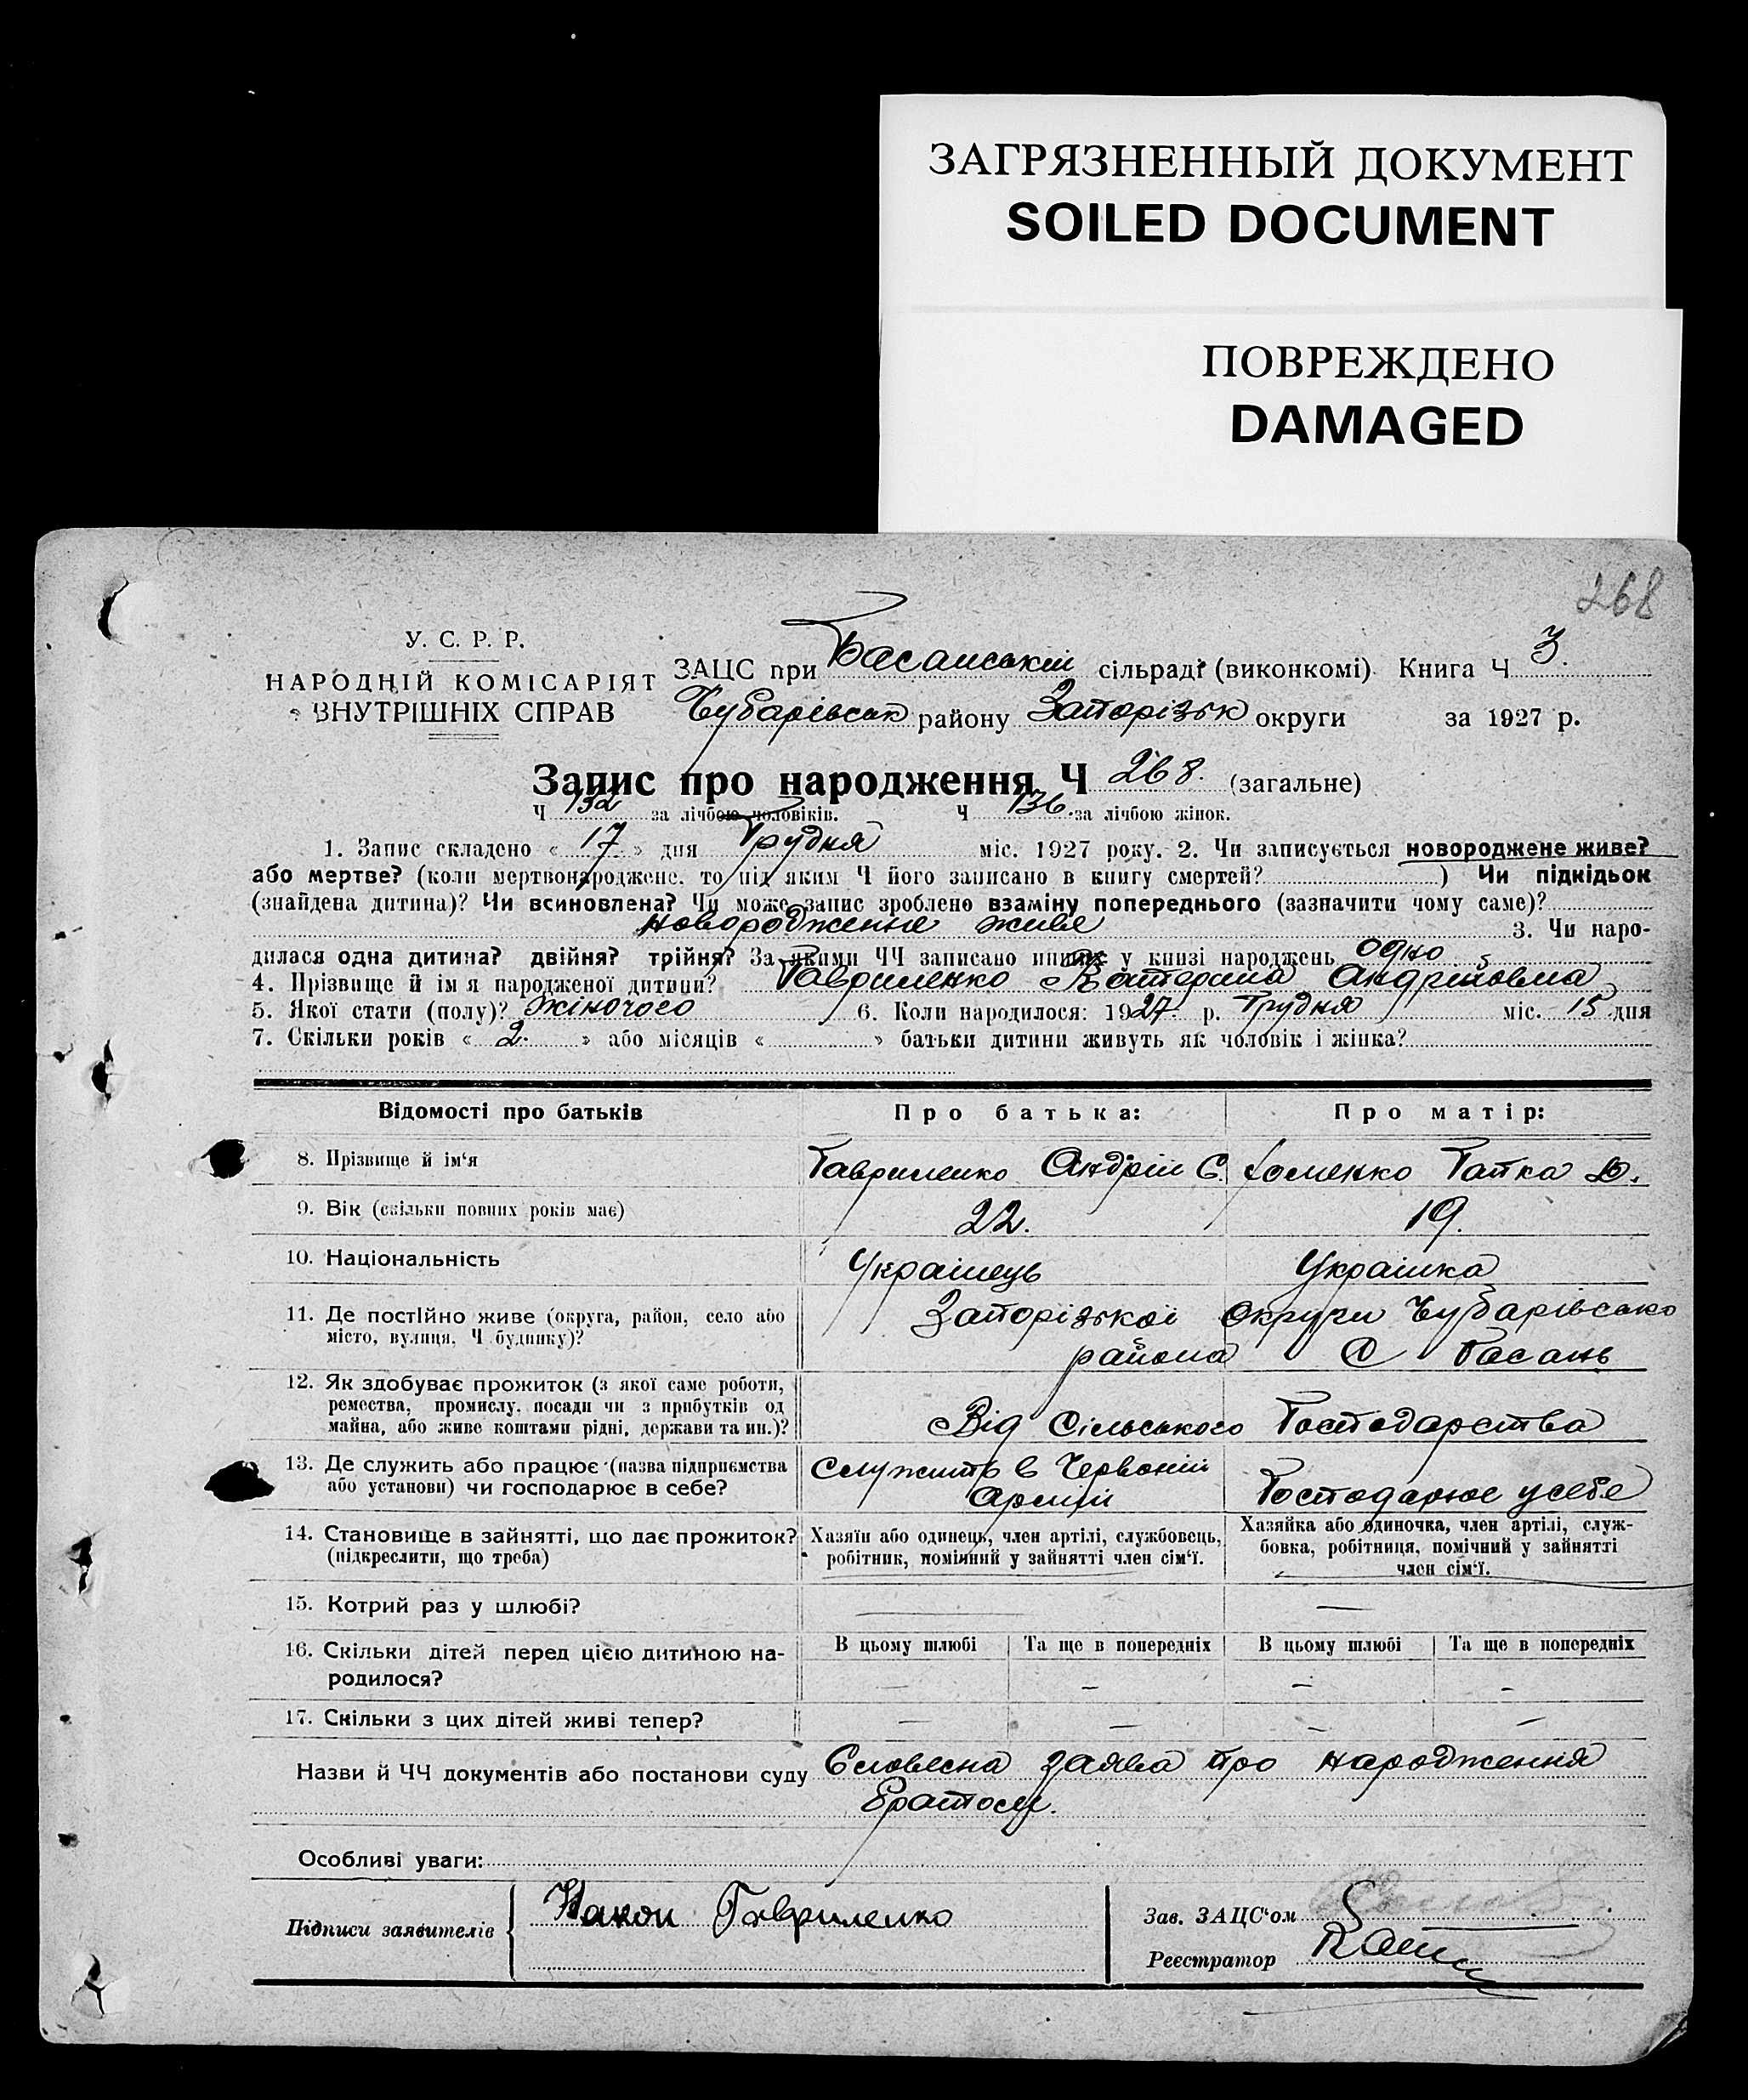 ЗАГРЯЗНЕННЫЙ ДОКУМЕНТ
SOILED DOCUMENT
ПОВРЕЖДЕНО
DAMAGED
268
У. С. Р. Р.
НАРОДНІЙ КОМІСАРІЯТ
ВНУТРІШНІХ СПРАВ
ЗАЦС при Басанській сільраді (виконкомі). Книга Ч 3.
Чубарівськ району Запорізьк округи за 1927 р.
Запис про народження Ч 268. (загальне)
Ч 132 за лічбою чоловіків. Ч 136. за лічбою жінок.
1. Запис складено « 17 » дня Грудня міс. 1927 року. 2. Чи записується новороджене живе?
або мертве? (коли мертвонароджене, то під яким Ч його записано в книгу смертей? ) Чи підкідьок
(знайдена дитина)? Чи всиновлена? Чи може запис зроблено взаміну попереднього (зазначити чому саме)?
новородженне живе 3. Чи наро-
дилася одна дитина? двійня? трійня? За якими ЧЧ записано инших у книзі народжень одно
4. Прізвище й ім'я народженої дитини? Гавриленко Катерина Андріївна
5. Якої стати (полу)? Жіночого 6. Коли народилося: 1927 р. Грудня міс. 15 дня
7. Скільки років « 2. » або місяців « » батьки дитини живуть як чоловік і жінка?
Відомості про батьків Про батька: Про матір:
8. Прізвище й ім'я Гавриленко Андрій Є. Хоменко Гапка Д.
9. Вік (скільки повних років має) 22. 19.
10. Національність Українець Українка
11. Де постійно живе (округа, район, село або Запорізької Округи Чубарівсько
місто, вулиця, Ч будинку)? района С Басань
12. Як здобуває прожиток (з якої саме роботи,
ремества, промислу, посади чи з прибутків од
майна, або живе коштами рідні, держави та ин.)? Від Сільського Господарства
13. Де служить або працює (назва підприємства Служить в Червоній
або установи) чи господарює в себе? Армії Господарює усебе
14. Становище в зайнятті, що дає прожиток? Хазяїн або одинець, член артілі, службовець, Хазяйка або одиночка, член артілі, служ-
(підкреслити, що треба) робітник, помічний у зайнятті член сім'ї. бовка, робітниця, помічний у зайнятті
член сім'ї.
15. Котрий раз у шлюбі? — —
16. Скільки дітей перед цією дитиною на- В цьому шлюбі Та ще в попередніх В цьому шлюбі Та ще в попередніх
родилося? — — — —
17. Скільки з цих дітей живі тепер? — — — —
Назви й ЧЧ документів або постанови суду Словесна заява про народження
Братом.
Особливі уваги:
Підписи заявителів Гавриленко
Зав. ЗАЦС'ом
Реєстратор